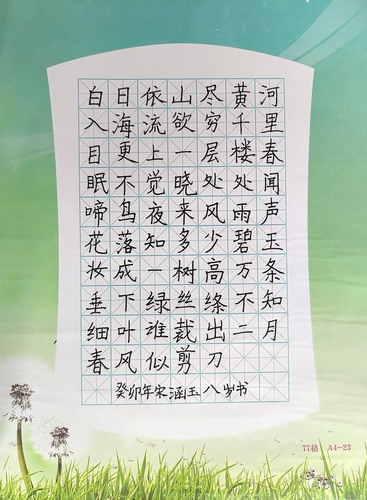 白日依山尽黄河
入海流欲穷千里
目更上一层楼春
眠不觉晓处处闻
啼鸟夜来风雨声
花落知多少碧玉
妆成一树高万条
垂下绿丝绦不知
细叶谁裁出二月
春风似剪刀
癸卯年宋涵玉八岁书
77格 A4-23